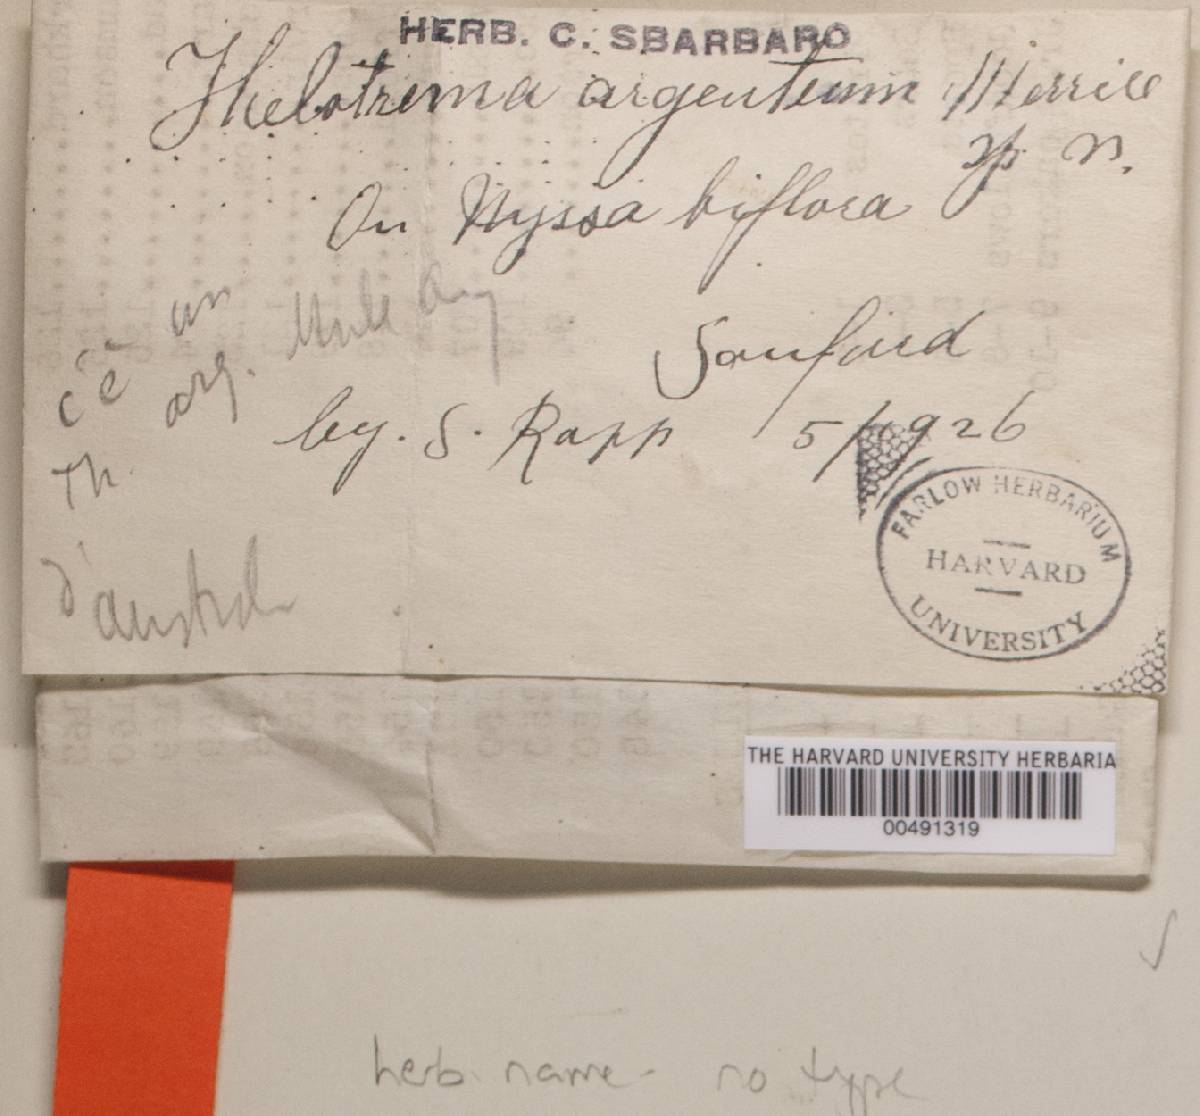 HERB. C. SBARBARO
Thelotrema argenteum Merrill
sp n.
On Nyssa biflora
un
c'è
arg.
Müll Arg
Sanford
by. S. Rapp 5/1926
Th.
d'austral
FARLOW HERBARIUM
HARVARD
UNIVERSITY
THE HARVARD UNIVERSITY HERBARIA
00491319
herb. name - no type